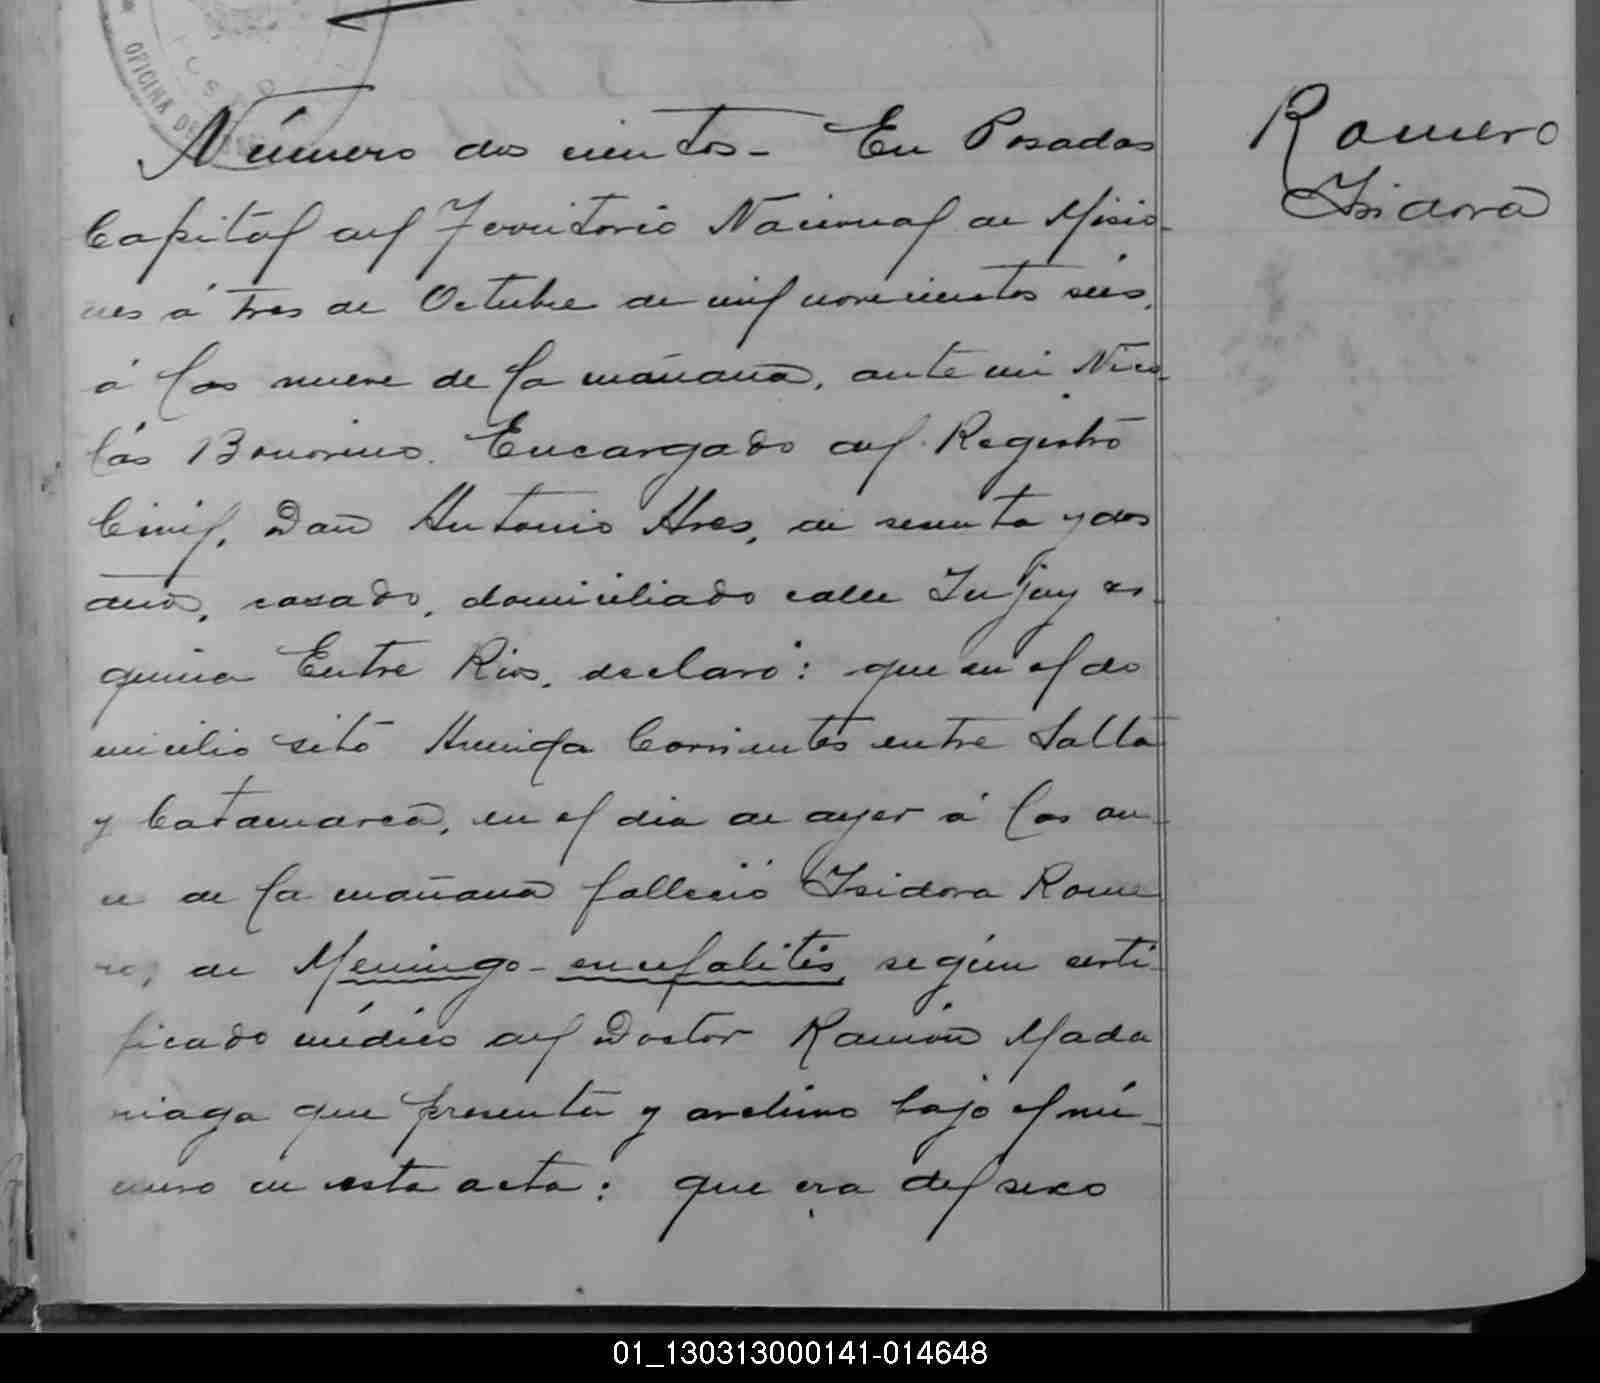 OFICINA DE
Número dos cientos - En Posadas
Capital del Territorio Nacional de Misio-
nes á tres de Octubre de mil novecientos séis,
á las nueve de la mañana, ante mi Nico-
lás Bonorino. Encargado del Registro
Civil, Don Antonio Ares, de sesenta y dos
años, casado, domiciliado calle Jujuy es-
quina Entre Rios, declaró: que en el do
micilio sito Avenida Corrientes entre Salta
y Catamarca, en el dia de ayer á las on-
ce de la mañana falleció Isidora Rome
ro, de Meningo-encefalitis, según certi-
ficado médico del Doctor Ramón Mada
riaga que presenta y archivo bajo el nú-
mero en esta acta: que era del sexo
Romero
Isidora
01_130313000141-014648